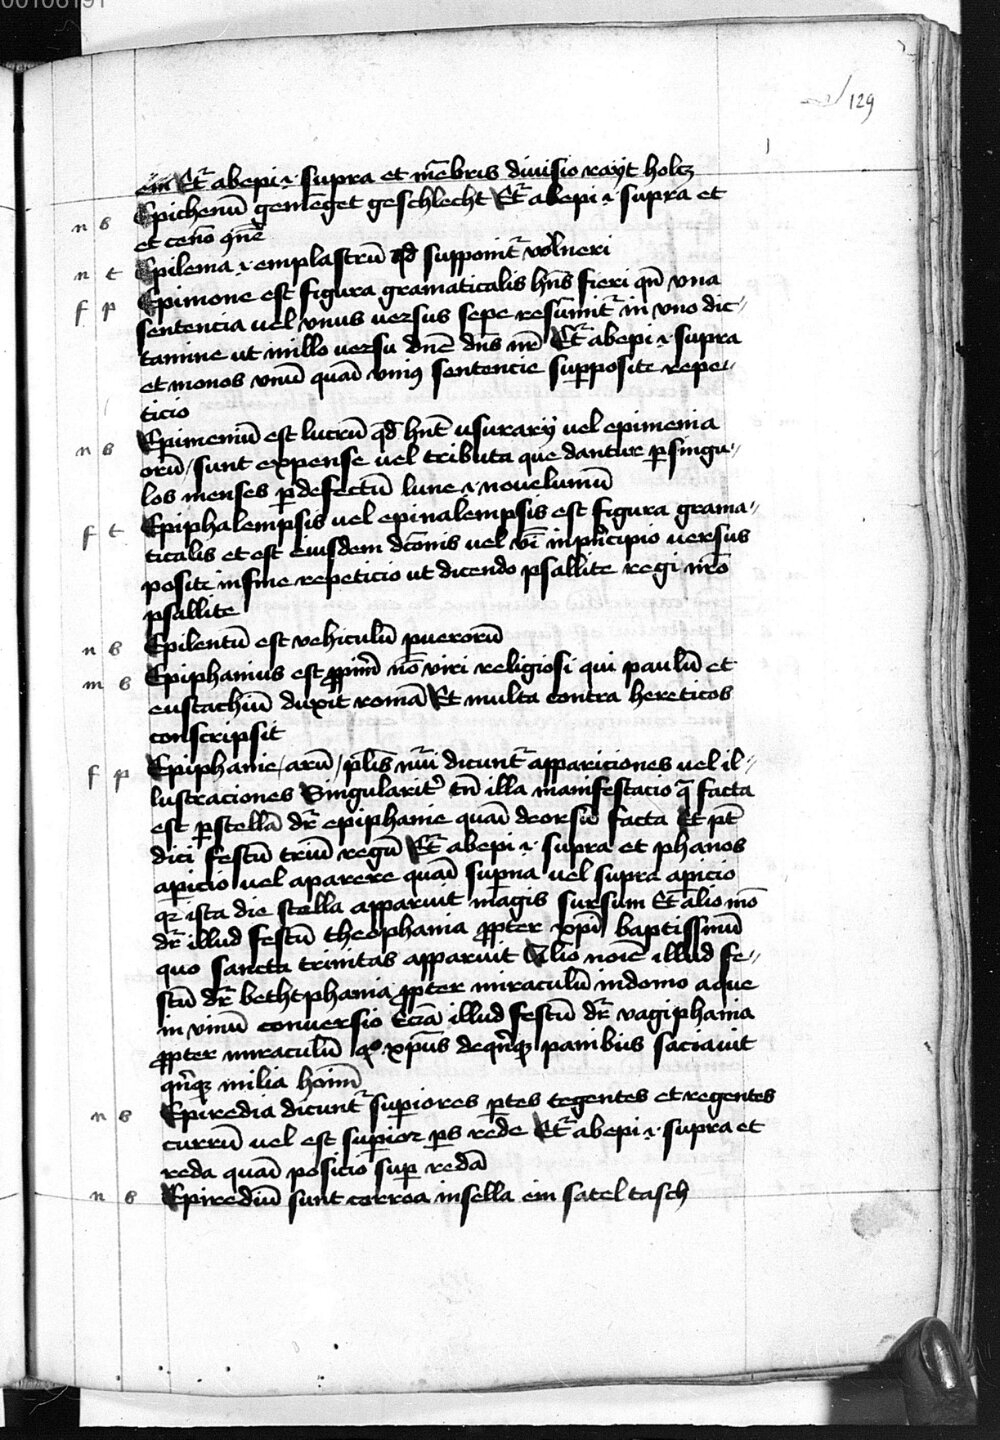 00106191
129
ein Et̄ ab epi .i. supra et mēbris divisio rayt holcz
n b Epichenū gemēget geschlecht Et̄ ab epi .i. supra et
et cenō qnē
n t Epilema .i. emplastrū qd̄ supponit̄ vulneri
f p Epimone est figura gramaticalis hn̄s fieri qn̄ vna
sentencia uel vnus uersus sepe resumit̄ in vno dic-
tamine ut in illo uersu dn̄e dn̄s nr̄ Et̄ ab epi .i. supra
et monos vnū quasi vniꝰ sentencie supposite repe-
ticio
n b Epimeniū est lucrū qd̄ hn̄t usurarij uel epimenia
orū / sunt expense uel tributa que dantur p singu-
los menses p defectū lune .i. nouelumū
f t Epiphalempsis uel epinalempsis est figura grama-
ticalis et est eiusdem dcōnis uel in principio uersus
posite in fine repeticio ut dicendo psallite regi nr̄o
psallite
n b Epilentū est vehiculū puerorū
m b Epiphanius est ꝓpiū nō viri religiosi qui paulū et
eustachiū duxit romā Et multa contra hereticos
conscripsit
f p Epiphanie / arū / pl̄is nūi dicunt̄ appariciones uel il-
lustraciones Singularit̄ tn̄ illa manifestacio q̄ facta
est p stellā dr̄ epiphanie quasi deorsū facta Et pt̄
dici festū triū regū Et̄ ab epi .i. supra et phanos
apicio uel aparere quasi supna uel supra apicio
qr̄ ista die stella apparuit magis sursum Et alio mō
dr̄ illud festū theophania ꝓpter xp̄i baptissmū
quo sancta trinitas apparuit Alio noīe illud fe-
stū dr̄ bethphania ꝓpter miraculū in domo aque
in vinū conuersio Eciā illud festū dr̄ vagiphania
ꝓpter miraculū qo xp̄us de qn̄qꝫ panibus saciauit
qn̄qꝫ milia hoīm
n b Epiredia dicunt̄ supiores ptes tegentes et regentes
currū uel est supior ps rede Et̄ ab epi .i. supra et
reda quasi posicio sup redā
n b Epirediū sunt corroa in sella ein satel tasch